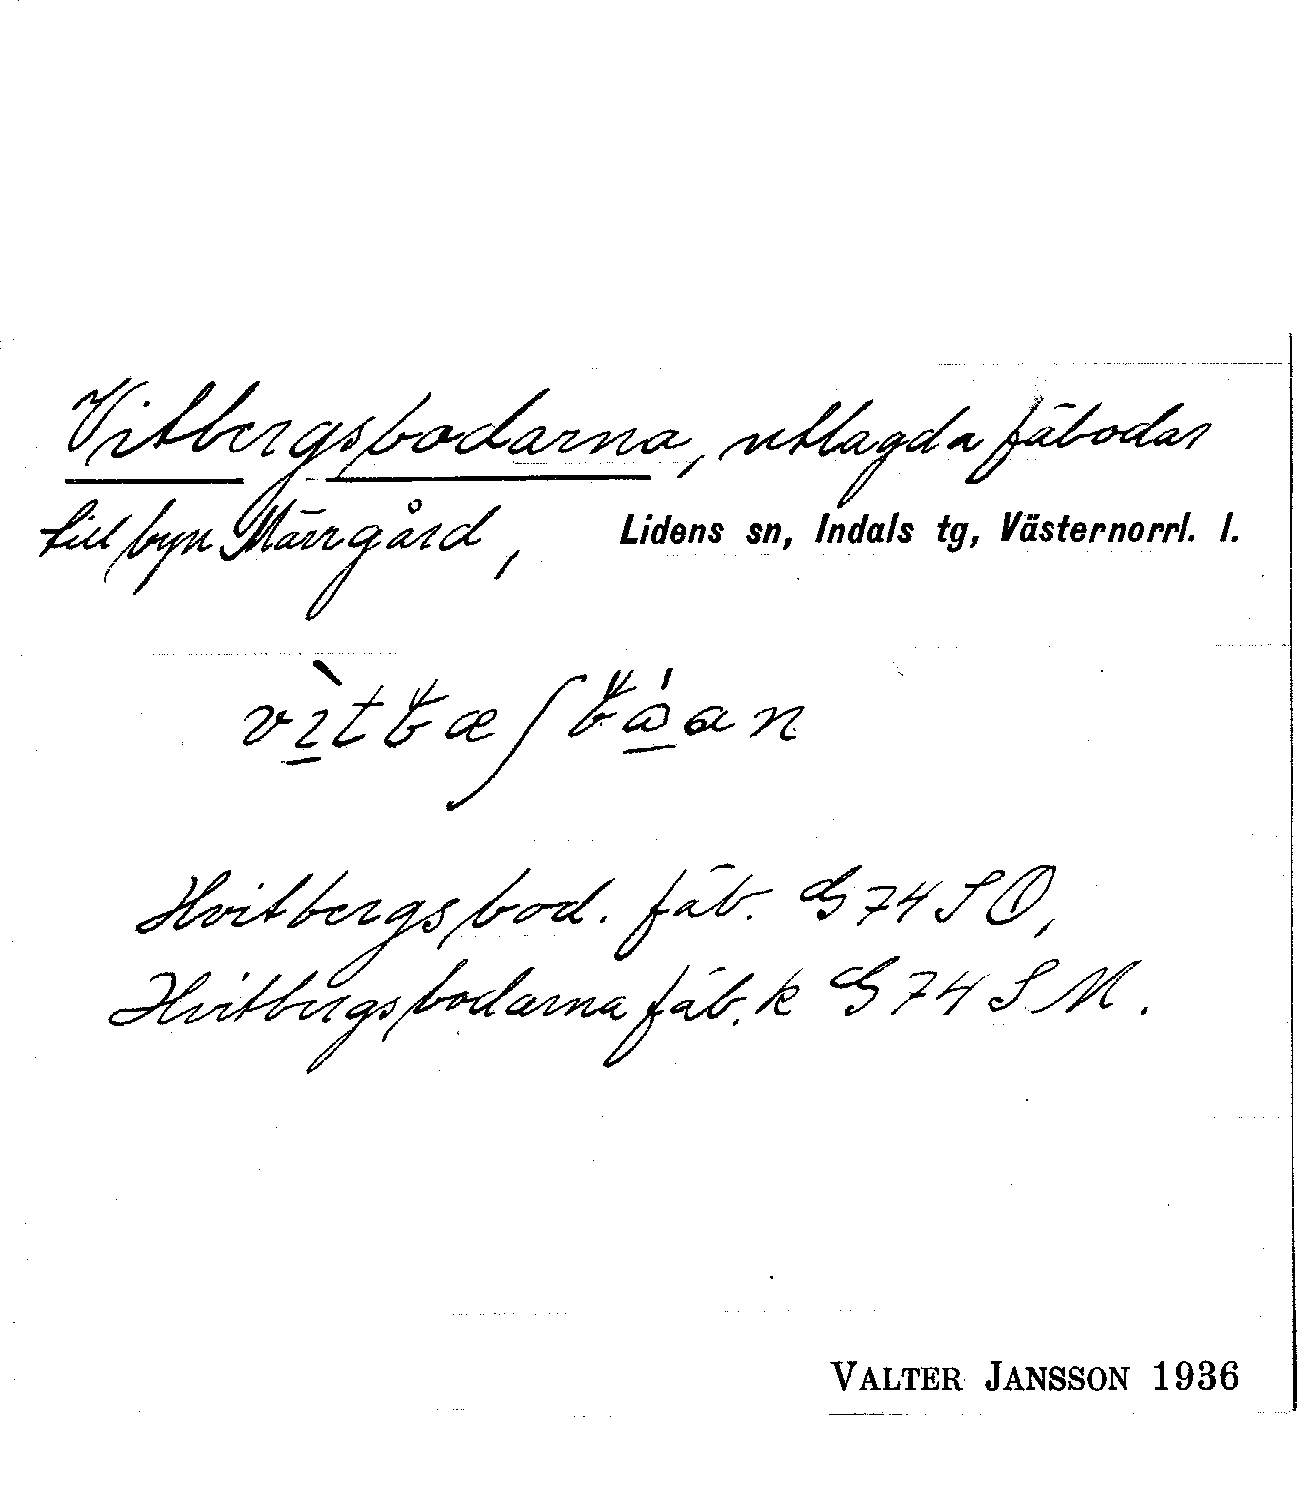 Vitbergsbodarna, utlagda fäbodar
till byn Märrgård, Lidens sn, Indals tg, Västernorrl. l.
Hvitbergsbod. fäb. G 74 S Ö,
Hvitbergsbodarna fäb. k G 74 S M.
VALTER JANSSON 1936